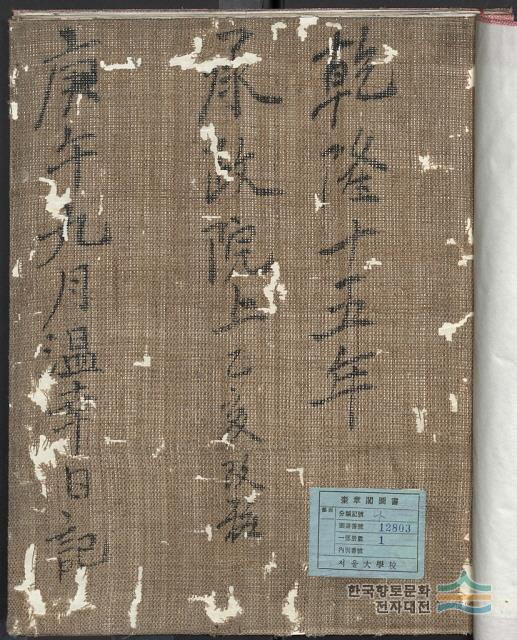 乾隆十五年
承政院上乙亥改粧
庚午九月温幸日記
奎章閣圖書
分類記號
圖書番號 12803
一部册數 1
內別番號
서울大學校
한국향토문화
전자대전